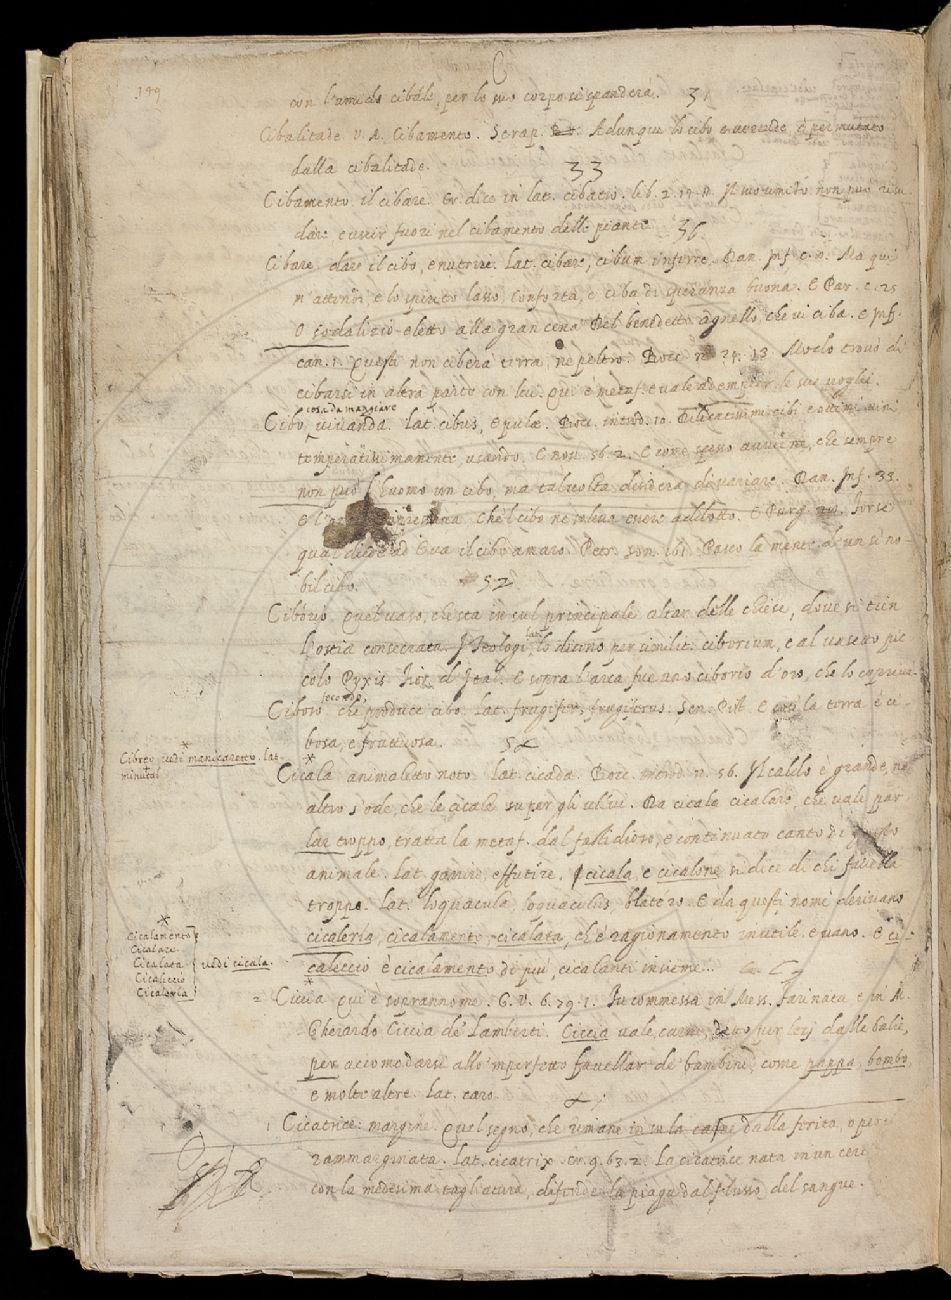 199
C
con l'amido cibale, per lo suo corpo si spanderà. 31
Cibalitade v. A. Cibamento. Serap. Adunque lo cibo è permutato
dalla cibalitade. 33
Cibamento il cibare. Cr. dice in lat. cibatio. lib. 2. Il suo umido non può risu
dare e uscir fuori nel cibamento delle piante. 56.
Cibare dare il cibo, e nutrire. lat. cibare, cibum inferre. Dan. Inf. c. 8. Ma qui
m'attendi, e lo spirito lasso, Conforta, e ciba di speranza buona. E Par. c. 25
O sodalizio eletto alla gran cena Del benedetto agnello, che vi ciba. E Inf.
can. 1. Questi non ciberà terra, nè peltro. Bocc. n. 29. 13. Modo trovò di
cibarsi in altra parte con lui. Qui è metaf. e vale adempier le sue voglie.
cosa da mangiare
Cibo, vivanda. lat. cibus, epulæ. Bocc. introd. 10. Dilicatissimi cibi e ottimi vini
temperatissimamente usando. E nov. 56. 2. E come spesso avviene, che sempre
non può l'huomo un cibo, ma talvolta desidera di variare. Dan. Inf. 33.
Che 'l cibo ne soleva essere addotto. E Purg. Forse
qual diede ad Eva il cibo amaro. Petr. son. 161. Pasco la mente d'un sì no-
bil cibo. 52
Ciborio. Quel vaso, che sta in sul principale altar delle chiese, dove si tien
l'ostia consecrata. I Teologi lat. lo dicono per similit. ciborium, e al vasetto pic
colo Pyxis. Fior. d'Ital. E sopra l'arca fue uno ciborio d'oro, che lo copriva.
fecondo,
Ciboso che produce cibo. lat. frugifer, frugiferus. Sen. Pist. E così la terra è ci-
bosa, e fruttuosa. 5
*
Cibreo, vedi manicaretto. lat.
minutal
*
Cicala animaletto noto. lat. cicada. Bocc. introd. n. 56. Il caldo è grande, nè
altro s'ode, che le cicale su per gli ulivi. Da cicala cicalare, che vale par
lar troppo, tratta la metaf. dal fastidioso, e continuato canto di questo
animale. lat. garrire, effutire. E cicala, e cicalone si dice di chi favella
troppo. Lat. loquacula, loquaculus, blatero. E da questi nomi derivano
cicaleria, cicalamento, cicalata, ch'è ragionamento inutile e vano. E ci-
caleccio è cicalamento di più, cicalanti insieme.
*
Cicalamento
Cicalare
Cicalata vedi cicala.
Cicaleccio
Cicaleria
*
2 Ciccia Qui è soprannome. G. V. 6. 79. 1. Fu commessa in Mess. Farinata e in M.
Gherardo Ciccia de' Lamberti. Ciccia vale carne, detto per lezj dalle balie,
per accomodarsi allo 'mperfetto favellar de' bambini, come pappa, bombo,
e molte altre. Lat. caro.
1 Cicatrice: margine. Quel segno, che rimane in su la carne dalla ferita,
rammarginata. Lat. cicatrix. Cr. 9. 63. 2. La cicatrice nata in un cert
con la medesima tagliatura, difende la piaga dal flusso del sangue.